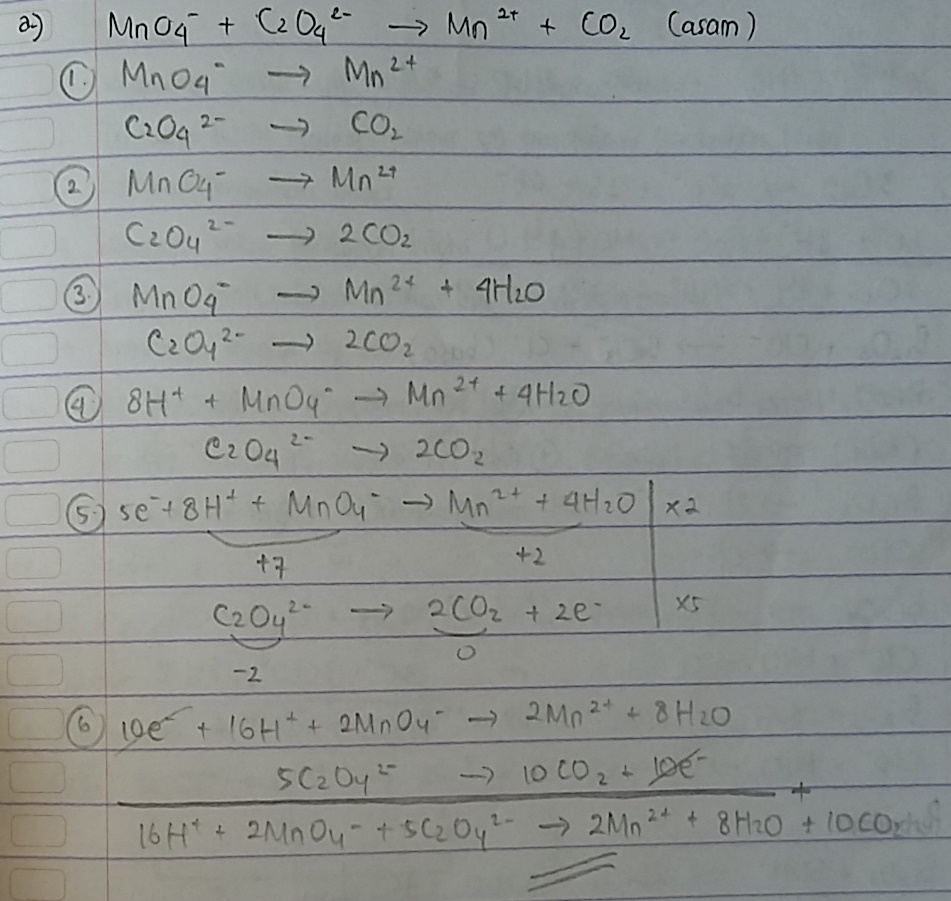 a.) MnO4⁻ + C2O4²⁻ → Mn²⁺ + CO2 (asam)
① MnO4⁻ → Mn²⁺
C2O4²⁻ → CO2
② MnO4⁻ → Mn²⁺
C2O4²⁻ → 2CO2
③ MnO4⁻ → Mn²⁺ + 4H2O
C2O4²⁻ → 2CO2
④ 8H⁺ + MnO4⁻ → Mn²⁺ + 4H2O
C2O4²⁻ → 2CO2
⑤ 5e⁻ + 8H⁺ + MnO4⁻ → Mn²⁺ + 4H2O | x2
+7 +2
C2O4²⁻ → 2CO2 + 2e⁻ | x5
-2 0
⑥ 10e⁻ + 16H⁺ + 2MnO4⁻ → 2Mn²⁺ + 8H2O
5C2O4²⁻ → 10CO2 + 10e⁻
+
16H⁺ + 2MnO4⁻ + 5C2O4²⁻ → 2Mn²⁺ + 8H2O + 10CO2